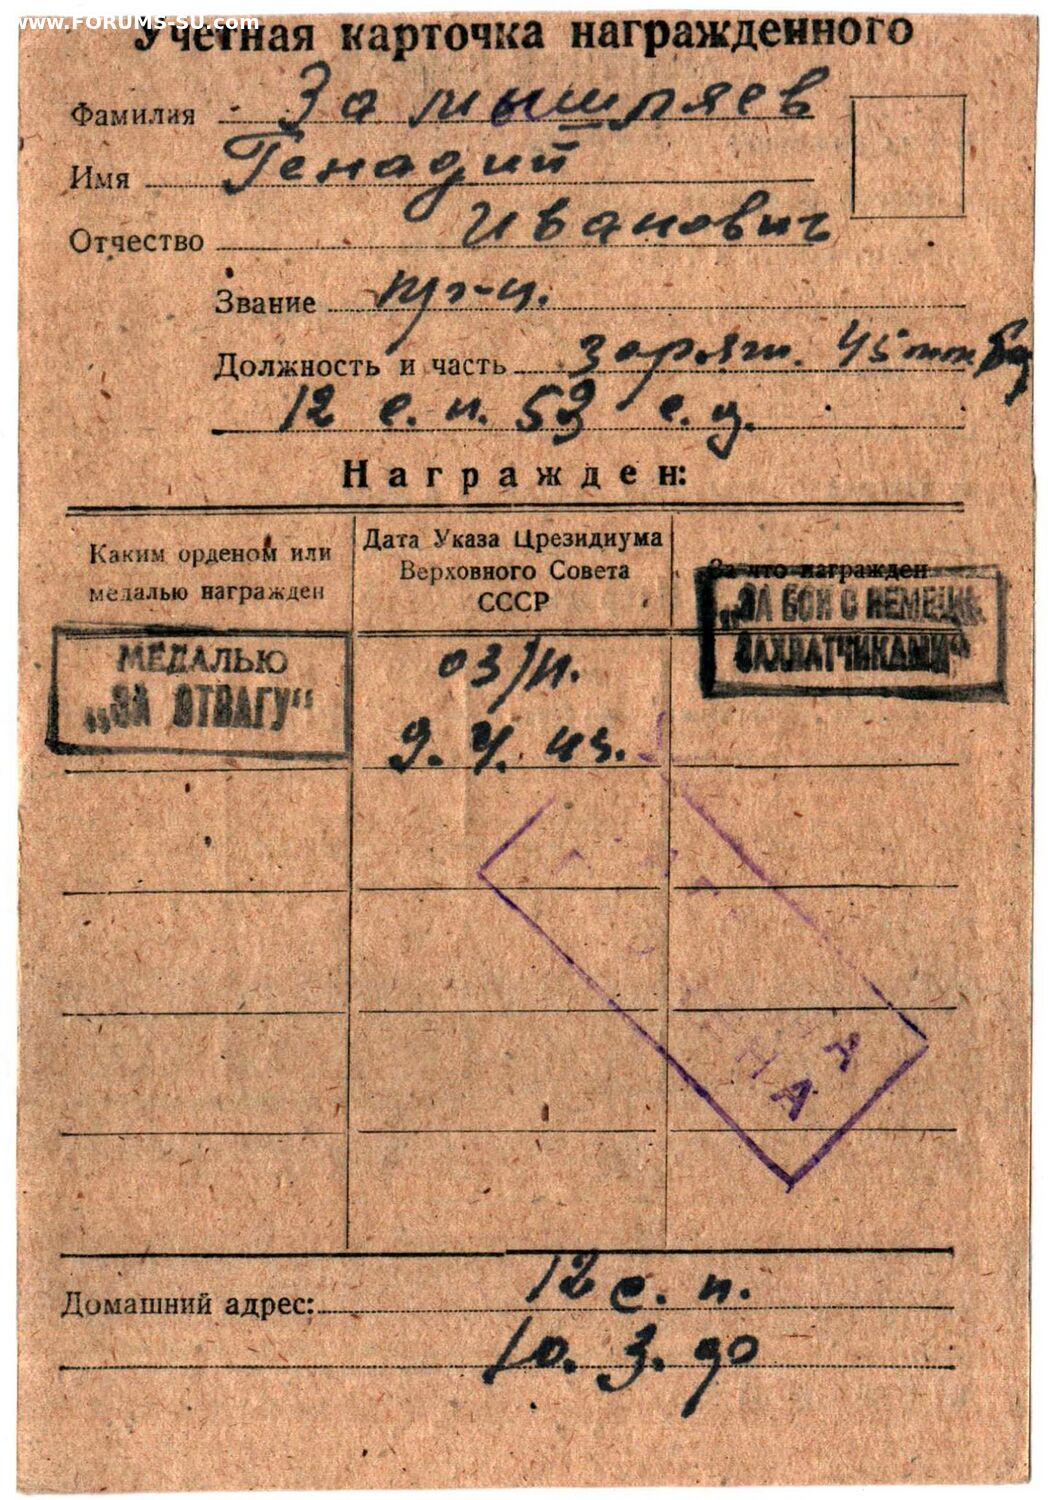 www.FORUMS-SU.com
Учетная карточка награжденного
Фамилия Замышляев
Имя Генадий
Отчество Иванович
Звание
Должность и часть заряж. 45 мм
12 с. п. 53 с. д.
Награжден:
Каким орденом или медалью награжден
Дата Указа Президиума Верховного Совета СССР
За что награжден
МЕДАЛЬЮ
„ЗА ОТВАГУ“
03/н.
„ЗА БОИ С НЕМЕЦК.
ЗАХВАТЧИКАМИ“
Домашний адрес: 12 с. п.
10. 3.